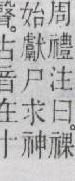 周禮注曰祼
始獻尸求神
聲古音在十